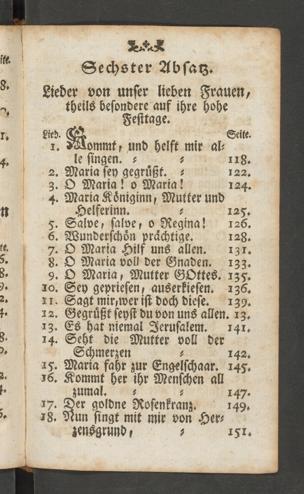 Sechster Absatz.
Lieder von unser lieben Frauen,
theils besondere auf ihre hohe
Festtage.
Lied. Seite.
1. Kommt, und helft mir al-
le singen. = = 118.
2. Maria sey gegrüßt. = 122.
3. O Maria! o Maria! 124.
4. Maria Königinn, Mutter und
Helferinn. = 125.
5. Salve, salve, o Regina! 126.
6. Wunderschön prächtige. 128.
7. O Maria Hilf uns allen. 131.
8. O Maria voll der Gnaden. 133.
9. O Maria, Mutter GOttes. 135.
10. Sey gepriesen, auserkiesen. 136.
11. Sagt mir, wer ist doch diese. 139.
12. Gegrüßt seyst du von uns allen. 13.
13. Es hat niemal Jerusalem. 141.
14. Seht die Mutter voll der
Schmerzen = 142.
15. Maria fahr zur Engelschaar. 145.
16. Kommt her ihr Menschen all
zumal. = = 147.
17. Der goldne Rosenkranz. 149.
18. Nun singt mit mir von Her-
zensgrund, = 151.